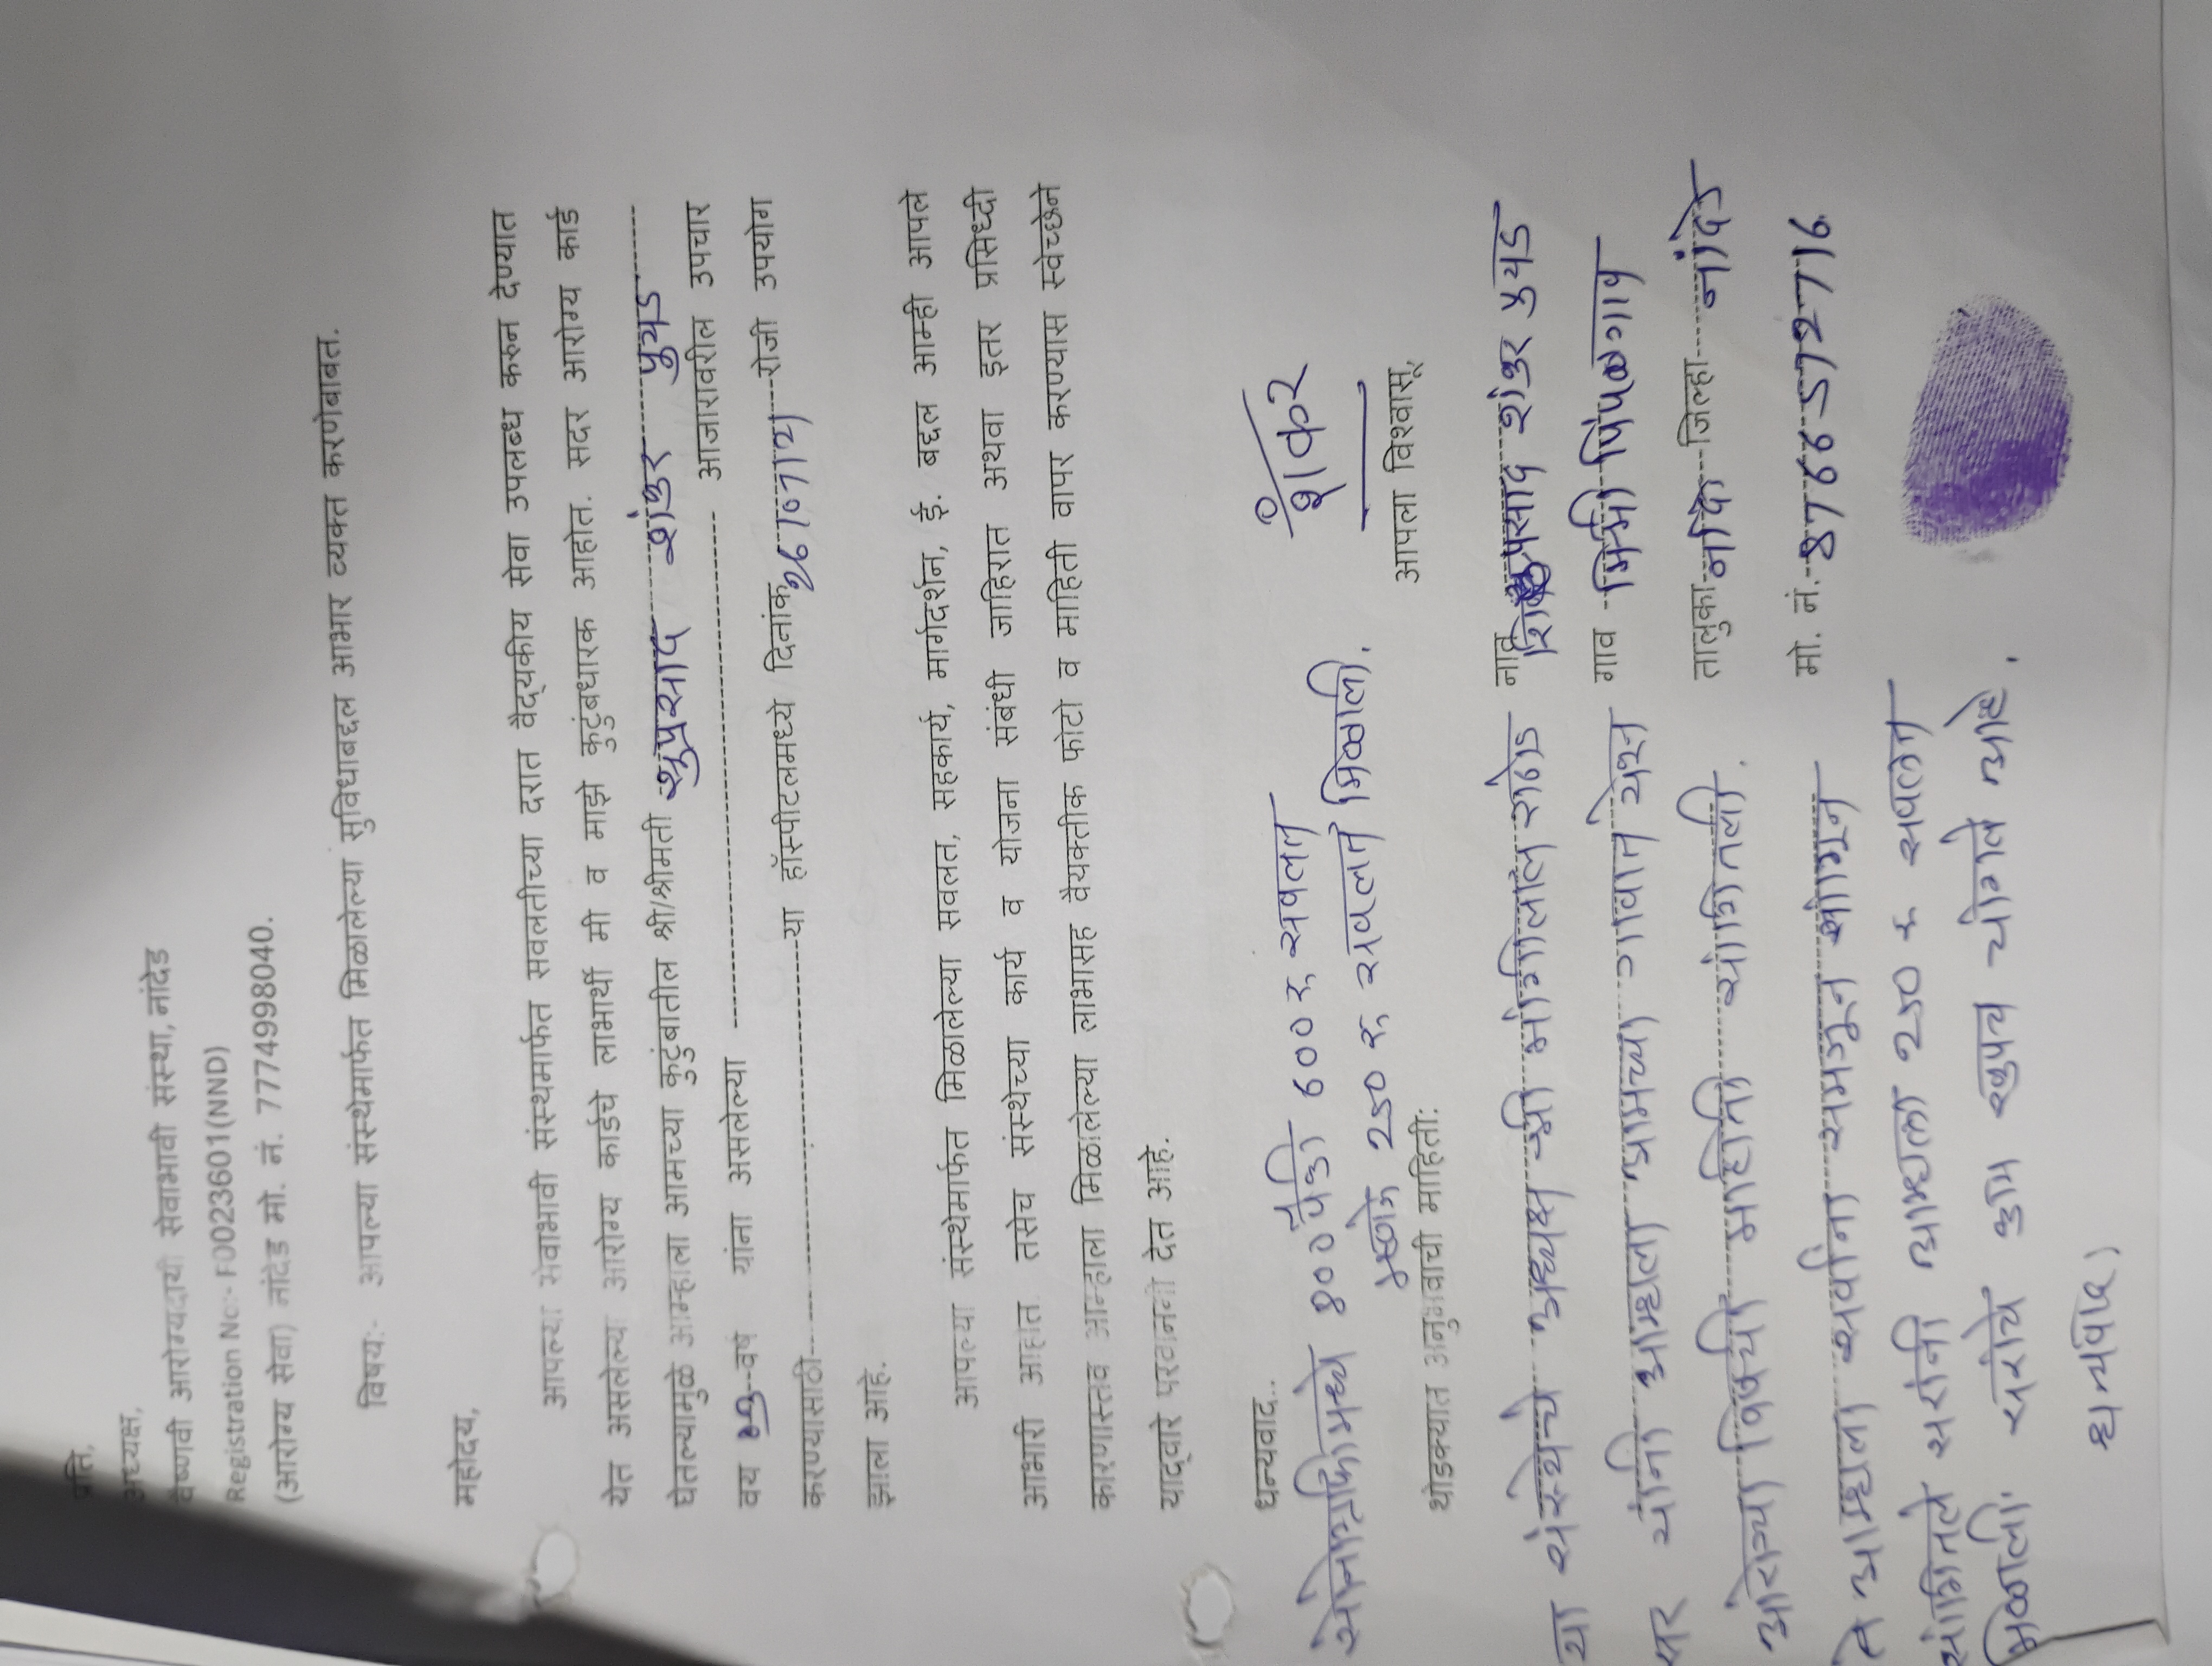 प्रति,
अध्यक्ष,
वैष्णवी आरोग्यदायी सेवाभावी संस्था, नांदेड
Registration No:- F0023601(NND)
(आरोग्य सेवा) नांदेड मो. नं. 7774998040.
विषय:- आपल्या संस्थेमार्फत मिळालेल्या सुविधाबद्दल आभार व्यक्त करणेबाबत.
महोदय,
आपल्या सेवाभावी संस्थेमार्फत सवलतीच्या दरात वैद्यकीय सेवा उपलब्ध करुन देण्यात
येत असलेल्या आरोग्य कार्डचे लाभार्थी मी व माझे कुटुंबधारक आहोत. सदर आरोग्य कार्ड
घेतल्यामुळे आम्हाला आमच्या कुटुंबातील श्री/श्रीमती शंकर पुयड
वय वर्ष यांना असलेल्या आजारावरील उपचार
करण्यासाठी या हॉस्पीटलमध्ये दिनांक रोजी उपयोग
झाला आहे.
आपल्या संस्थेमार्फत मिळालेल्या सवलत, सहकार्य, मार्गदर्शन, ई. बद्दल आम्ही आपले
आभारी आहात तसेच संस्थेच्या कार्य व योजना संबंधी जाहिरात अथवा इतर प्रसिध्दी
कारणास्तव आम्हाला मिळालेल्या लाभासह वैयक्तीक फोटो व माहिती वापर करण्यास स्वेच्छेने
याद्वारे परवानगी देत आहे.
धन्यवाद..
सोनोग्राफीमध्ये 800 पैकी 600 रु सवलत
म्हणजे 250 रु सवलत मिळाली.
शंकर
आपला विश्वासू,
थोडक्यात अनुभवाची माहिती:
नाव शंकर पुयड
गाव पिंपळगाव
तालुका नांदेड जिल्हा नांदेड
मो. नं.
या संस्थेचे अध्यक्ष श्री मांगीलाल राठोड
सर यांनी आम्हाला आमच्या गावात येऊन
आरोग्या विषयी माहिती सांगितली.
ते आम्हाला सर्वांना समजून सांगून
सांगितले सरांनी आम्हाला 250 रु सवलत
मिळाली. सरांचे काम खुपच चांगले आहे.
धन्यवाद